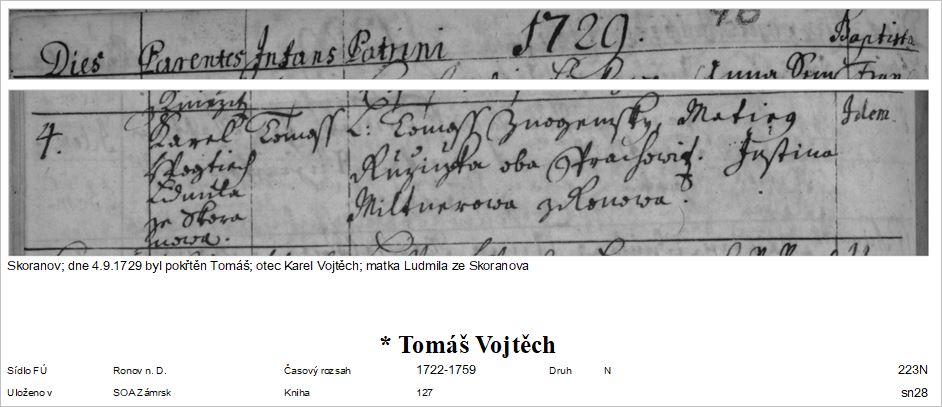 1729.
Dies Parentes Infans Patrini Baptista
Anna
4. Karel Tomass L: Tomass Znogemsky, Matieg Idem.
Wogtiech Ružiczka oba Prachowicz. Justina
Ldmila Miltnerowa z Ronowa.
ze Skora
nowa.
Skoranov; dne 4.9.1729 byl pokřtěn Tomáš; otec Karel Vojtěch; matka Ludmila ze Skoranova
* Tomáš Vojtěch
Sídlo FÚ Ronov n. D. Časový rozsah 1722-1759 Druh N 223N
Uloženo v SOA Zámrsk Kniha 127 sn28